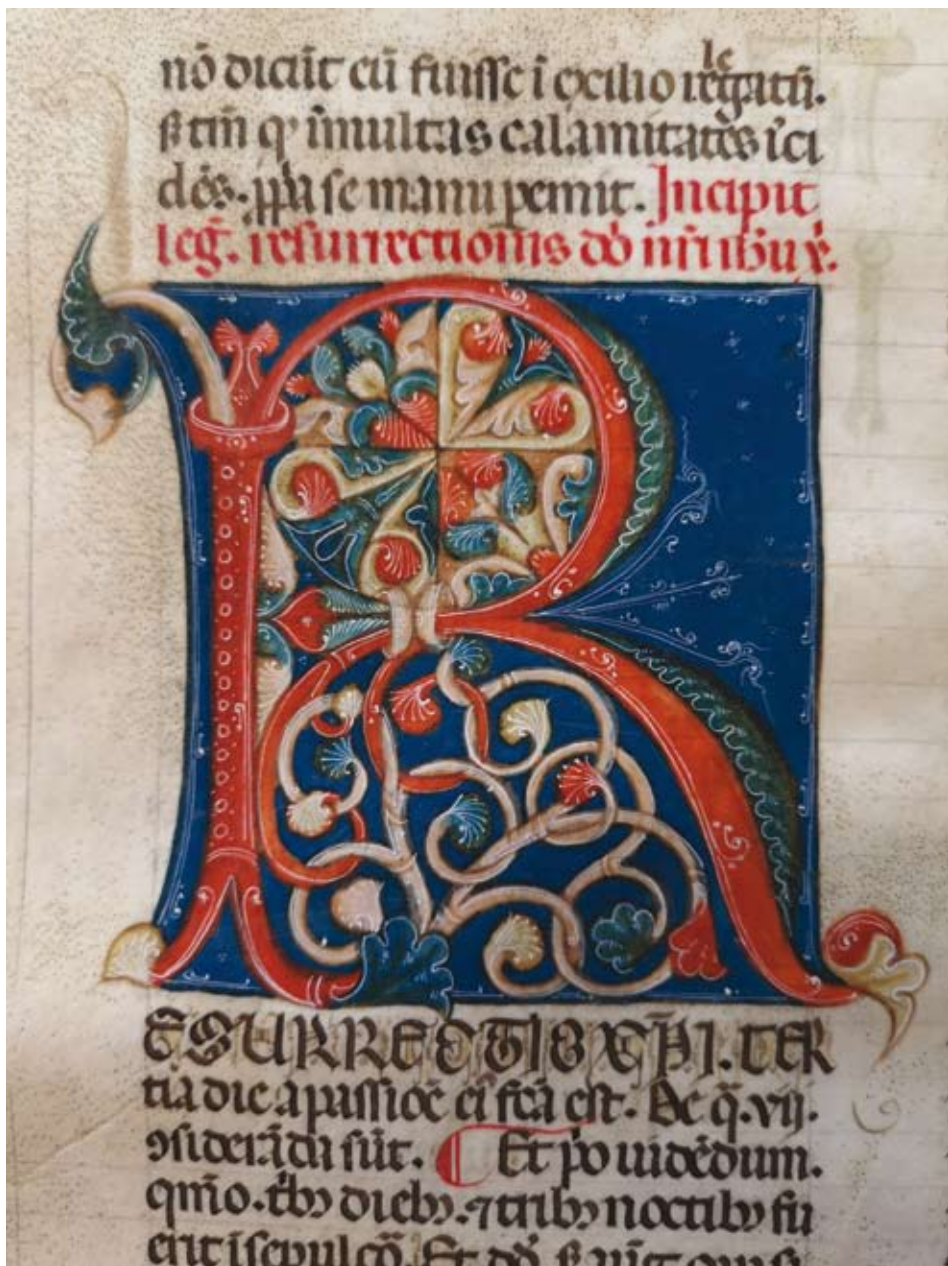 nō dicūt eū fuisse ī exilio regatū.
le
ß tm̄ qꝫ ī multas calamitates īci
dēs. ꝓpa se manu pemit. Incipit
leg. resurrectionis dō nr̄i ihu x̄.
R
ESURRECTIO XP̄I. TER
tia die a passiōe eī fcā est. De q̄. vij.
ꝯsiderāda sūt. ¶ Et p̊o uidēdum.
qm̄o. tbꝫ diebꝫ. ⁊ tribꝫ noctibꝫ fu
erit ī sepulcō. Et